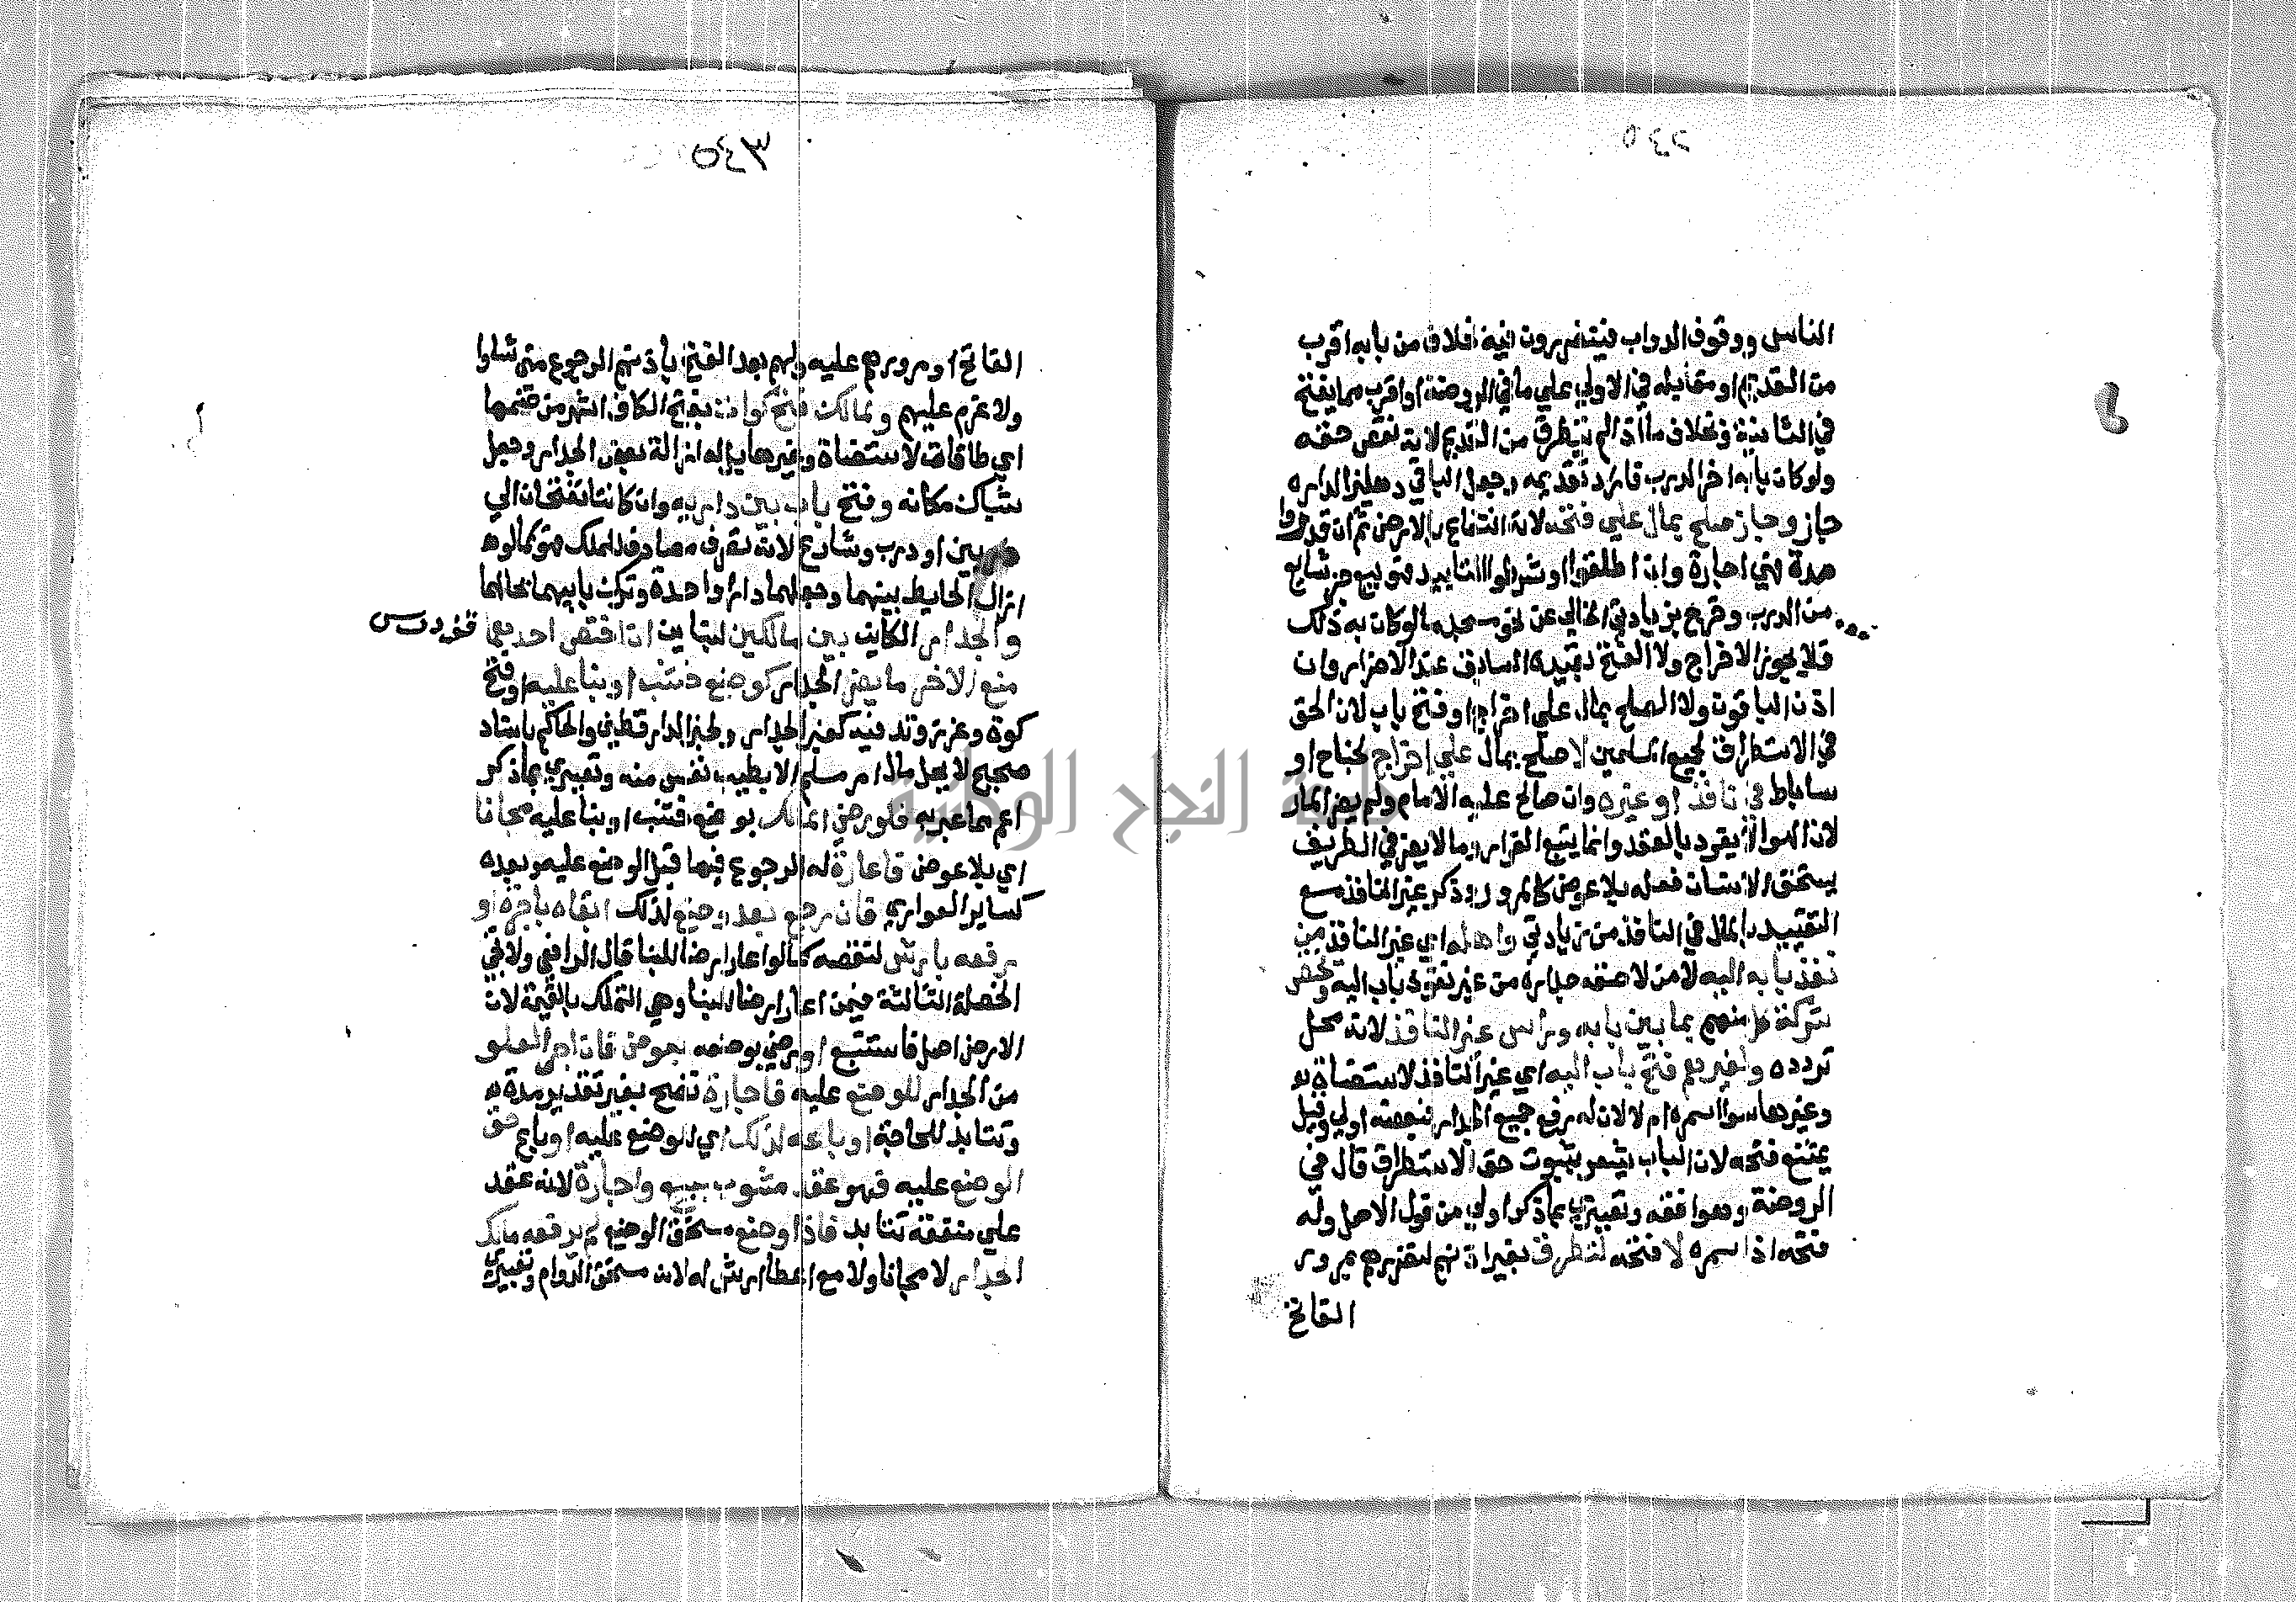 الناس ووقوف الدواب فيتضررون فيه فلاف من بابه اقرب
من القديم او مقابله في الاولي علي ما في الروضة او اقرب مما يفتح
في الثانية وبخلاف ما اذا لم يتطرق من القديم لانه نقص حقه
ولو كان بابه اخر الدرب فاراد تقديمه وجعل الباقي دهليزا لداره
جاز وجاز صلح بمال علي فتحه لانه انتفاع بالارض ثم ان قدروا
مدة فهي اجارة وان اطلقوا او شرطوا التابيد فهو بيع جزء شايع
من الدرب وخرج بزيادتي الخالي عن نحو مسجد ما لو كان به ذلك
فلا يجوز الاخراج ولا الفتح بقيده السابق عند الاضرار وان
اذن الباقون ولا الصلح بمال علي اخراج او فتح باب لان الحق
في الاستطراق لجميع المسلمين لا صلح بمال علي اخراج لجناح او
ساباط في نافذ او غيره وان صالح عليه الامام ولم يضر المار
لان الهوا لا يفرد بالعقد وانما يتبع القرار وما لا يضر في الطريق
يستحق الانسان فعله بلا عوض كالمرور وذكر غير النافذ مع
التقييد بالمال في النافذ من زيادتي واهله اي غير النافذ من
نفذ بابه اليه لا من لاصقه جداره من غير نفوذ باب اليه وتختص
شركة كل منهم بما بين بابه وراس غير النافذ لانه محل
تردده ولغيرهم فتح باب اليه اي غير النافذ لاستضاة به
وغيرها سوا اسمره ام لا لان له رفع جميع الجدار فبعضه اولي وقيل
يمتنع فتحه لان الباب يشعر بثبوت حق الاستطراق قال في
الروضة وهو افقه وتعبيري بما ذكر اولي من قول الاصل وله
فتحه اذا سمره لا فتحه لتطرق بغير اذنهم لتضررهم بمرور
الفاتح
٣٤٥
الفاتح او مرورهم عليه ولهم بعد الفتح باذنهم الرجوع متي شاوا
ولا غرم عليهم ولمالك فتح كوات بفتح الكاف اشهر من ضمها
اي طاقات لاستضاة وغيرها بل له ازالة بعض الجدار وجعل
شباك مكانه وفتح باب بين داريه وان كانتا تفتحان الي
دربين او درب وشارع لانه تصرف مصادف للملك فهو كما لو
ازال الحايط بينهما وجعلهما دارا واحدة وترك بابيهما بحالهما
والجدار الكاين بين مالكين لبناين ان اختص احدهما
منع الاخر ما يضر الجدار كوضع خشب او بنا عليه او فتح
كوة وغرز وتد فيه كغير الجدار ولخبر الدارقطني والحاكم باسناد
صحيح لا يحل مال امر مسلم الا بطيب نفس منه وتعبيري بما ذكر
اعم مما عبر به فلو رضي المالك بوضع خشب او بنا عليه مجانا
اي بلا عوض فاعارة له الرجوع فيها قبل الوضع عليه وبعده
كساير العواري فان رجع بعد وضع لذلك ابقاه باجرة او
رفعه بارش لنقصه كما لو اعار ارضا للبنا قال الرافعي ولا تجي
الخصلة الثالثة فيمن اعار ارضا للبنا وهي التملك بالقيمة لان
الارض اصل فاستتبع او رضي بوضعه بعوض فان اجر العلو
من الجدار للوضع عليه فاجارة تصح بغير تقدير مدة
وتتابد للحاجة او باعه لذلك اي للوضع عليه او باع حق
الوضع عليه فهو عقد مشوب ببيع واجارة لانه عقد
علي منفعة تتابد فاذا وضع مستحق الوضع لم يرفعه مالك
الجدار لا مجانا ولا مع اعطا ارش له لانه مستحق الدوام وتعبيري
جامعة النجاح الوطنية